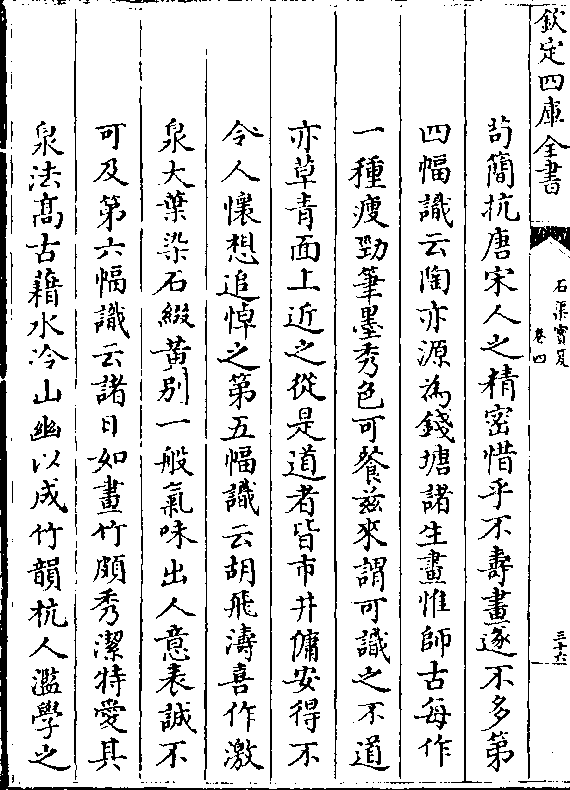 欽定四庫全書
石渠寳笈
卷四
三十六
茍簡抗唐宋人之精宻惜乎不壽畫遂不多第
四幅識云陶亦源為錢塘諸生畫惟師古每作
一種瘦勁筆墨秀色可餐兹來謂可識之不道
亦草青面上近之從是道者皆市井傭安得不
令人懷想追悼之第五幅識云胡飛濤喜作激
泉大葉染石綴黄别一般氣味出人意表誠不
可及第六幅識云諸日如畫竹頗秀潔特愛其
泉法髙古藉水冷山幽以成竹韻杭人濫學之